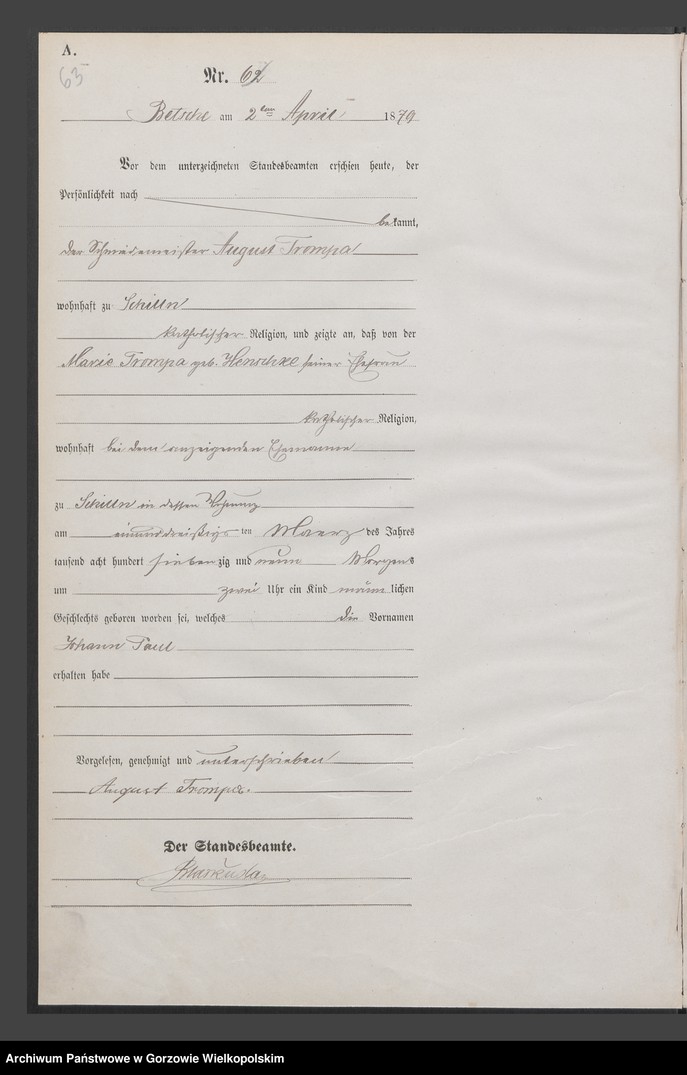 A.
63
Nr. 62
Betsche am 2ten April 1879
Vor dem unterzeichneten Standesbeamten erschien heute, der
Persönlichkeit nach
bekannt,
der Schmiedemeister August Trompa
wohnhaft zu Schilln
katholischer Religion, und zeigte an, daß von der
Marie Trompa geb. Henschke seiner Ehefrau
katholischer Religion,
wohnhaft bei dem anzeigenden Ehemanne
zu Schilln in dessen Wohnung
am einunddreißigsten ten Maerz des Jahres
tausend acht hundert siebenzig und neun Morgens
um zwei Uhr ein Kind männlichen
Geschlechts geboren worden sei, welches die Vornamen
Johann Paul
erhalten habe
Vorgelesen, genehmigt und unterschrieben
August Trompa.
Der Standesbeamte.
Archiwum Państwowe w Gorzowie Wielkopolskim